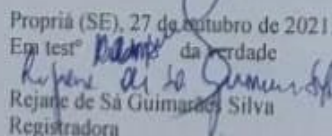 Propriá (SE), 27 de outubro de 2021
Em testº da verdade
Rejane de Sá Guimarães Silva
Registradora